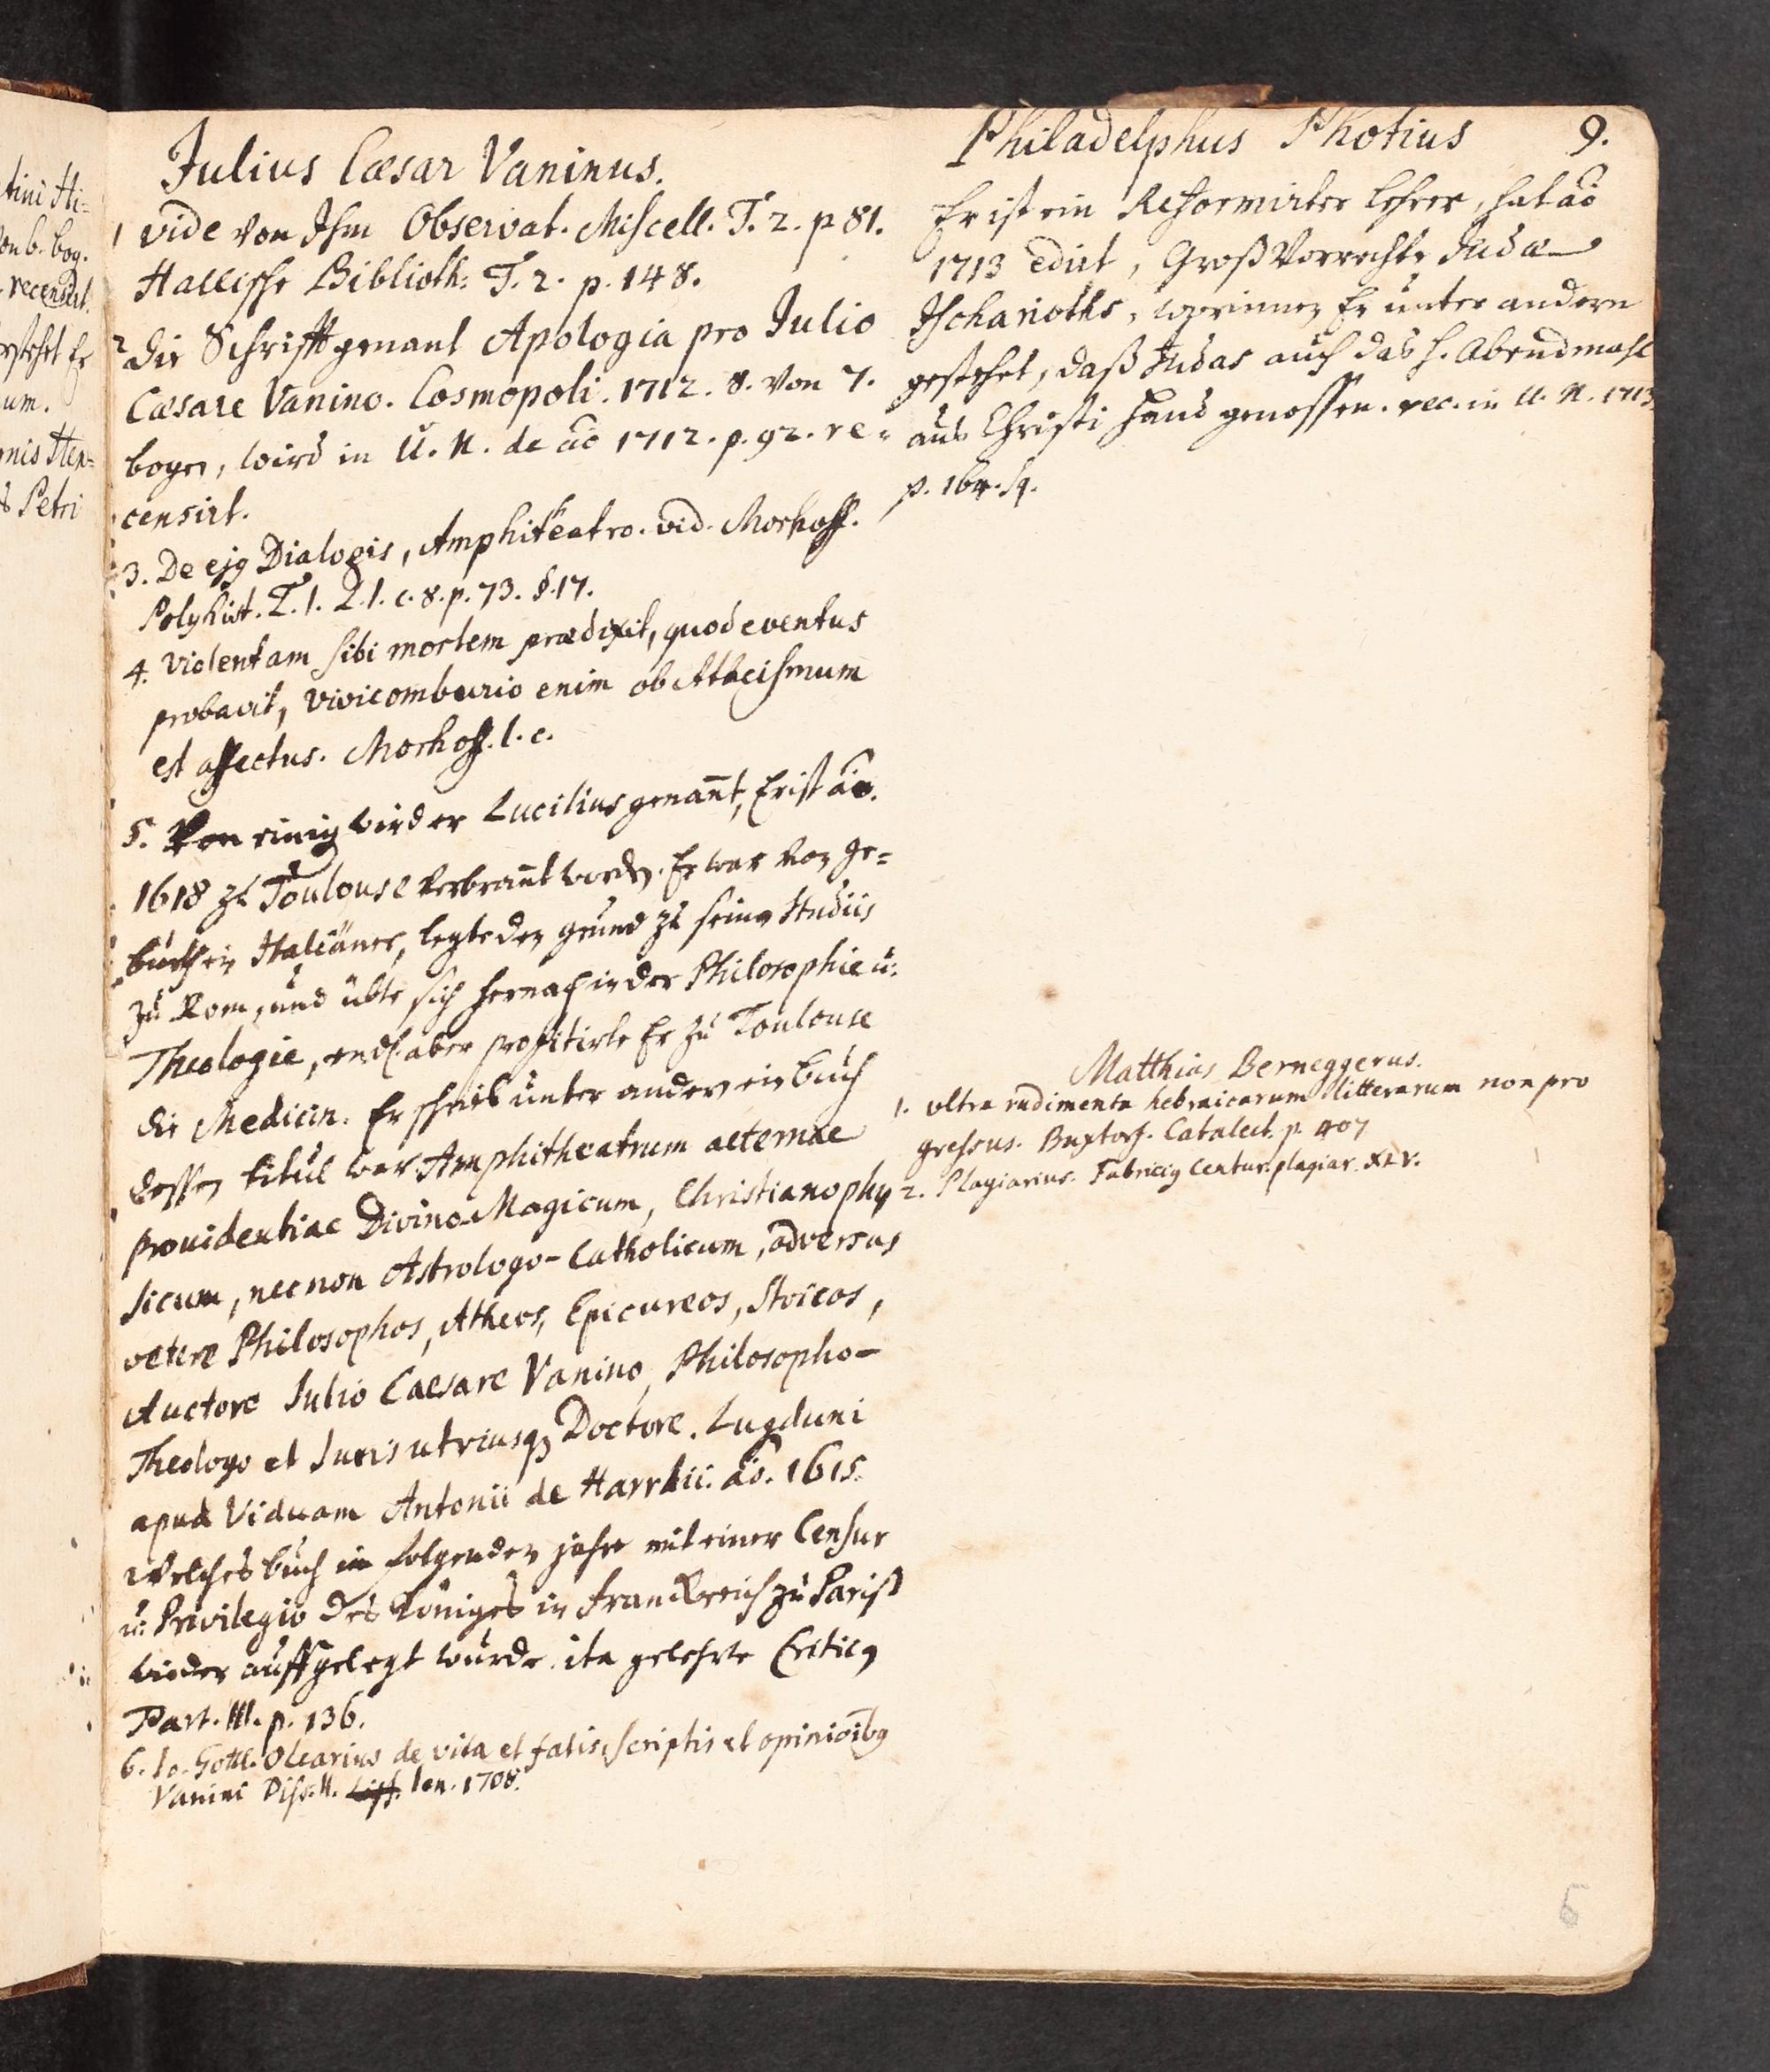 Julius Cæsar Vaninus.
1 vide von Ihm Observat. Miscell. T. 2. p 81.
Hallische Biblioth: T. 2. p. 148.
2 die Schrifft genant Apologia pro Julio
Cæsare Vanino. Cosmopoli. 1712. 8. von 7.
bogen, wird in U. N. de ao 1712. p. 92. re=
censirt.
3. De ejꝫ Dialogis, Amphiteatro. vid. Morhoff.
Polyhist. T. 1. L. 1. c. 8. p. 73. §. 17.
4. violentam sibi mortem prædixit, quod eventus
probavit, vivicomburio enim ob Atheismum
est affectus. Morhoff. l. c.
5. Von einig wird er Lucilius genañt, Er ist ao.
1618 zu Toulouse verbrañt worden. Er war von ge=
burth ein Italiäner, legte den grund zu seinen Studiis
zu Rom, und übte sich hernach in der Philosophie u.
Theologie, endl. aber profitirte Er zu Toulouse
die Medicin. Er schrieb unter andern ein buch
dessen titul war Amphitheatrum aeternae
providentiae Divino-Magicum, Christianophy
sicum, nec non Astrologo-Catholicum, adversus
vetere Philosophos, Atheos, Epicureos, Stoicos,
Auctore Iulio Caesare Vanino, Philosopho-
Theologo et Iuris utriusqꝫ Doctore. Lugduni
apud Viduam Antonii de Harrsii. ao. 1615.
welches buch in folgenden jahre mit einer Censur
u. Privilegio des Königes in Franckreich zu Pariß
wieder auffgelegt wurde. ita gelehrte Criticꝫ
Part. III. p. 136.
6. Io. Gottl. Olearius de vita et fatis, scriptis et opinioībꝫ
Vanini Diss. II. Ien. 1708.
Philadelphus Photius 9.
Er ist ein Reformirter Lehrer, hat ao
1713 edirt, Groß Vorrechte Judæ
Ischarioths, worinnen Er unter andern
gestehet, daß Judas auch das h. Abendmahl
aus Christi hand genossen. rec. in U. N. 1713.
p. 164. sq.
Matthias Berneggerus.
1. ultra rudimenta hebraicarum litterarum non pro
gressus. Buxtorf. Catalect. p. 407
2. Plagiarius. Fabriciꝫ Centur. plagiar. XLV.
6
tini Hi=
von 6. bog.
recensirt.
gestehet Er
um.
nis Hen=
s Petri